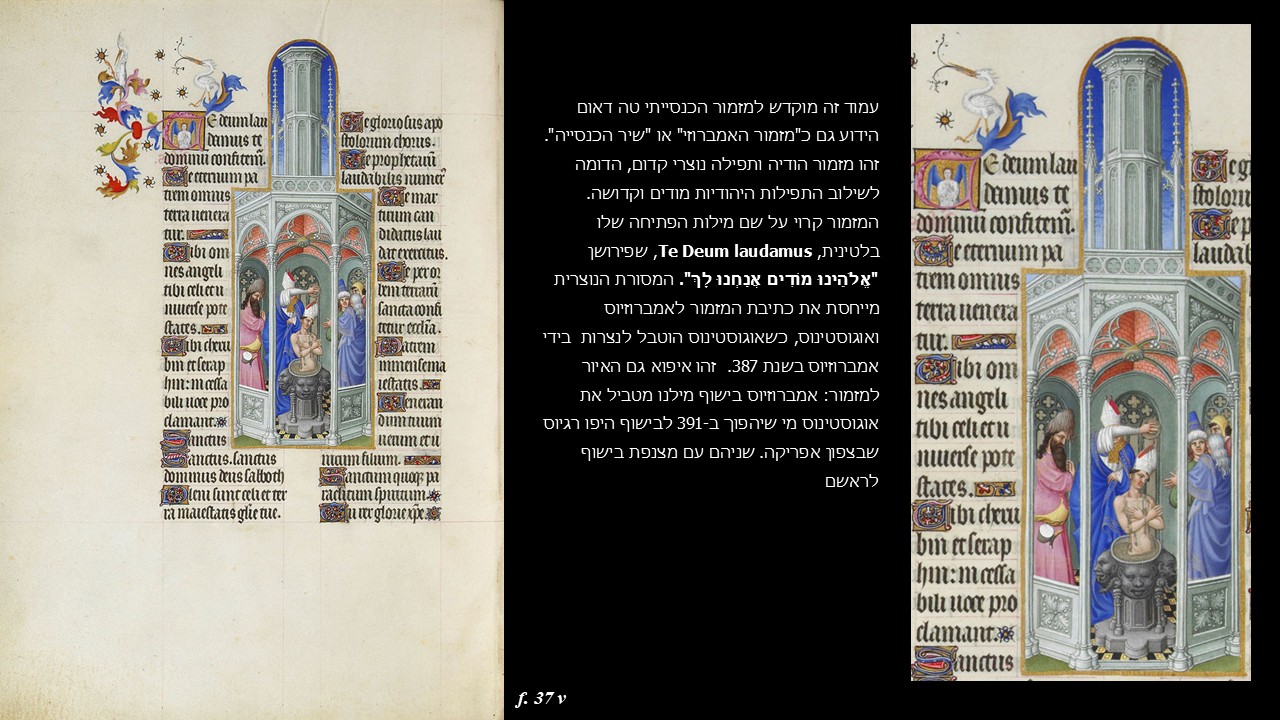 Te deum lau
damus te
dominu confitem.
Te eternum pa
trem omnis
terra uenera
tur.
Tibi om
nes angeli
tibi celi et u
niuerse pote
states.
Tibi cheru
bin et serap
hin: in cessa
bili uoce pro
clamant.
Sanctus
Sanctus. sanctus
dominus deus sabboth
Pleni sunt celi et ter
ra maiestatis glie tue.
Te gloriosus apo
stolorum chorus.
Te prophetaru
laudabilis numer
Te mar
tirum can
didatus lau
dat exercitus.
Te per or
bem terraru
sancta confi
tetur ecclia.
Patrem
immensema
iestatis.
Ueneran
dum tuum
uerum et u
nicum filium.
Sanctum quoq; pa
raclitum spiritum.
Tu rex glorie xpe.
עמוד זה מוקדש למזמור הכנסייתי טה דאום
הידוע גם כ"מזמור האמברוזי" או "שיר הכנסייה".
זהו מזמור הודיה ותפילה נוצרי קדום, הדומה
לשילוב התפילות היהודיות מודים וקדושה.
המזמור קרוי על שם מילות הפתיחה שלו
בלטינית, Te Deum laudamus, שפירושן
"אֱלֹהֵינוּ מוֹדִים אֲנַחְנוּ לָךְ". המסורת הנוצרית
מייחסת את כתיבת המזמור לאמברוזיוס
ואוגוסטינוס, כשאוגוסטינוס הוטבל לנצרות בידי
אמברוזיוס בשנת 387. זהו איפוא גם האיור
למזמור: אמברוזיוס בישוף מילנו מטביל את
אוגוסטינוס מי שיהפוך ב-391 לבישוף היפו רגיוס
שבצפון אפריקה. שניהם עם מצנפת בישוף
לראשם
f. 37 v
Te deum lau
damus te
dominu confitem.
Te eternum pa
trem omnis
terra uenera
tur.
Tibi om
nes angeli
tibi celi et u
niuerse pote
states.
Tibi cheru
bin et serap
hin: in cessa
bili uoce pro
clamant.
Sanctus
Te gl
stoloru
Te p
lauda